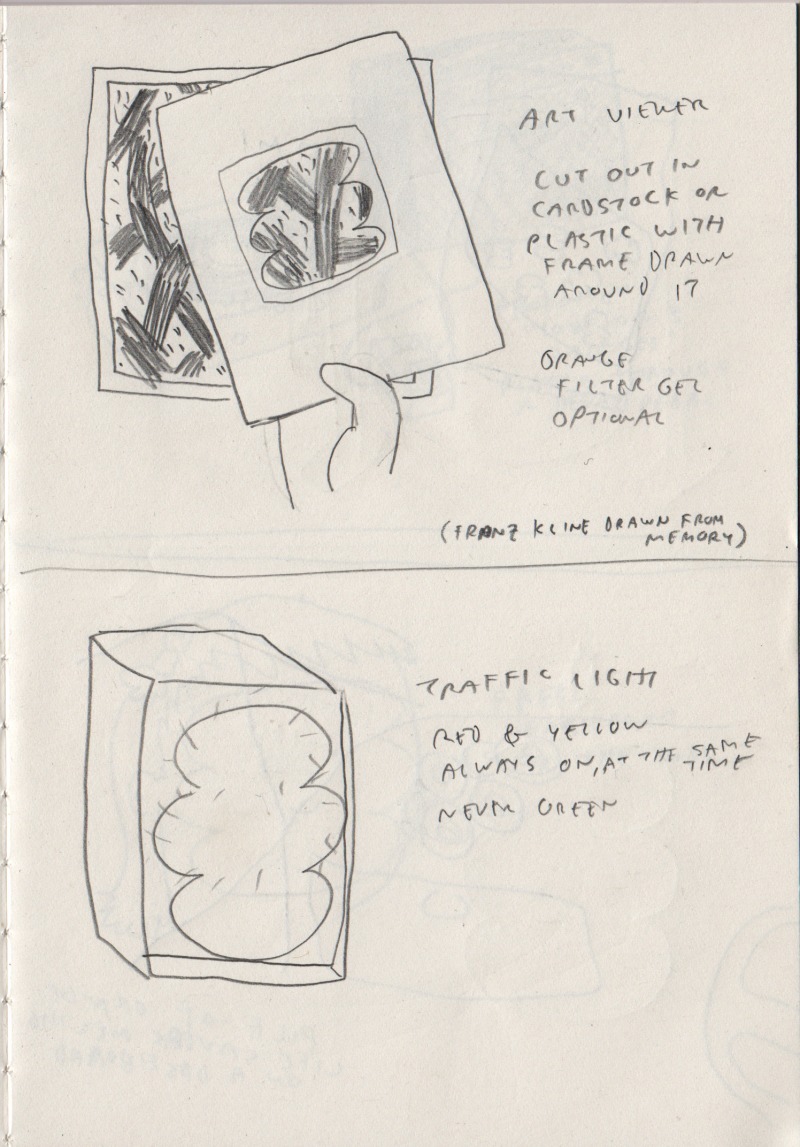 ART VIEWER
CUT OUT IN
CARDSTOCK OR
PLASTIC WITH
FRAME DRAWN
AROUND IT
ORANGE
FILTER GEL
OPTIONAL
(FRANZ KLINE DRAWN FROM
MEMORY)
TRAFFIC LIGHT
RED & YELLOW
ALWAYS ON, AT THE SAME
TIME
NEVER GREEN